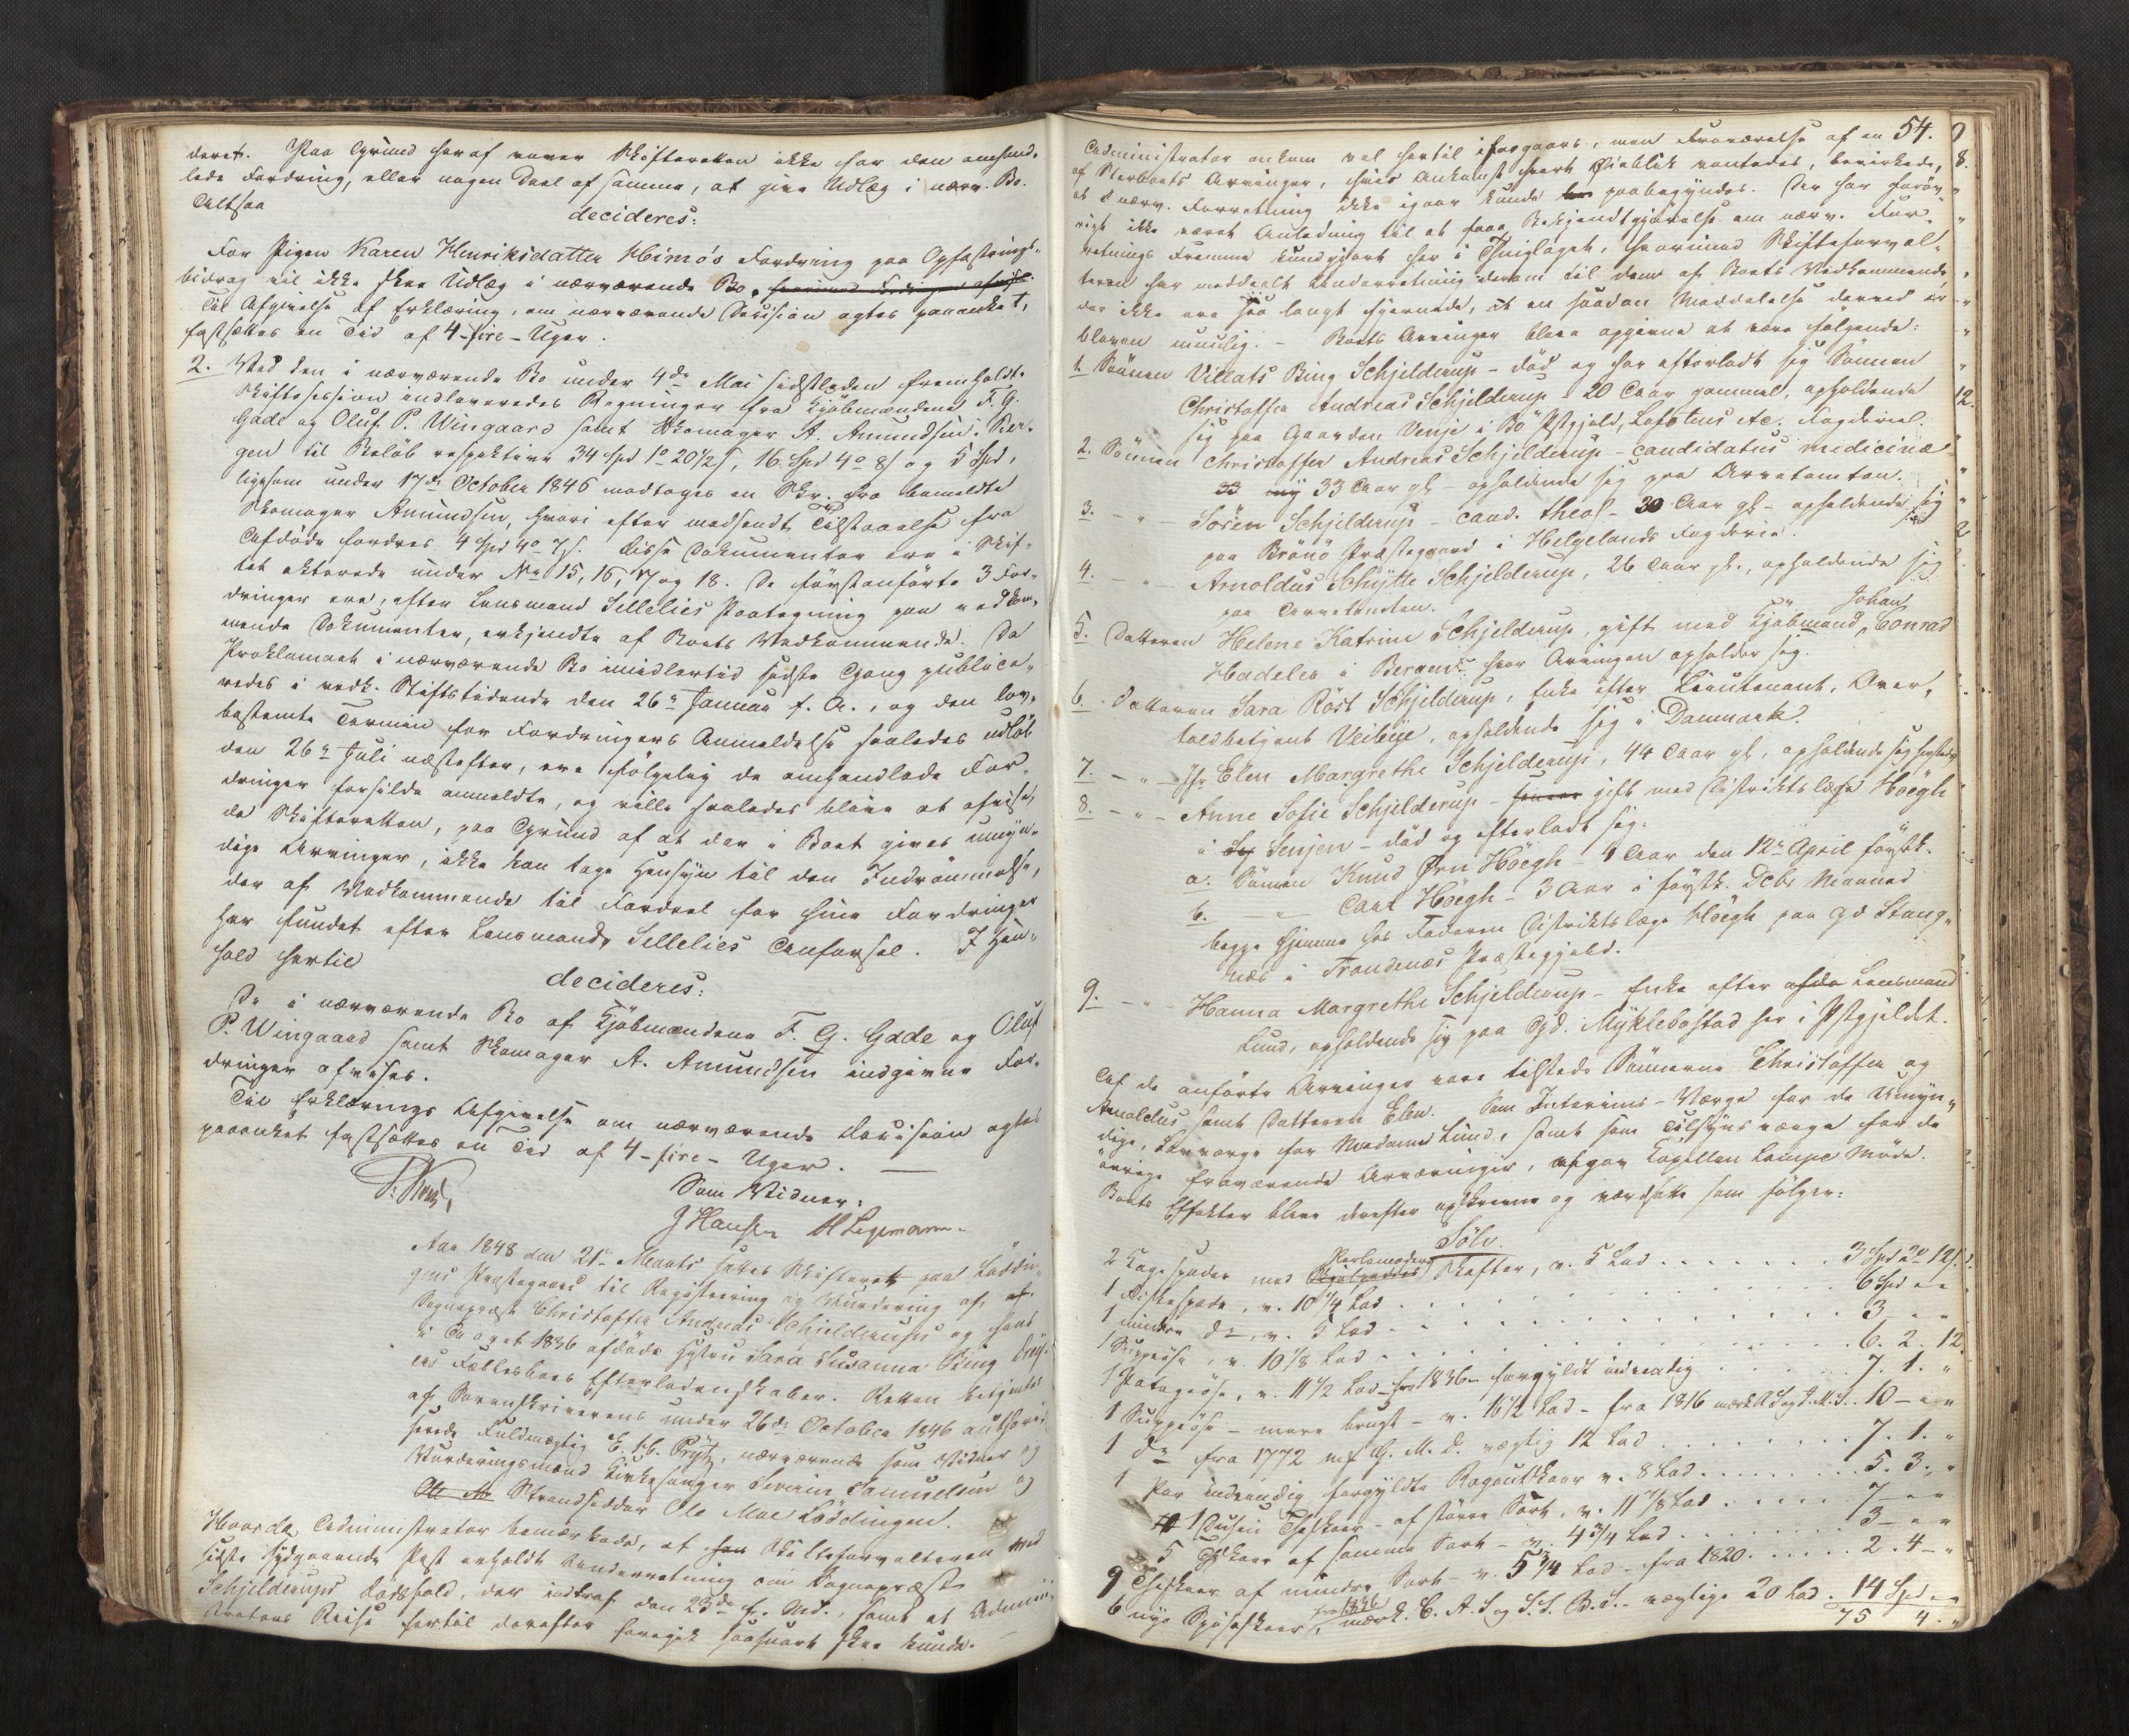 deret. Paa Grund heraf vover Skifteretten ikke for den omhand-
lede Fordring, eller nogen Deel af samme, at give Udlæg i nærv. Bo.
Altsaa
decideres:
For Pigen Karen Henriksdatter Heimö's Fordring paa Opfostrings-
bidrag vil ikke skee Udlæg i nærværende Bo.
Til Afgivelse af Erklæring, om nærværende Decision agtes paaanket,
fastsættes en Tid af 4-fire-Uger.
2. Ved den i nærværende Bo under 4de Mai sidstleden fremholdte
Skiftesession indleveredes Regninger fra Kjöbmændene F. G.
Gade og Oluf P. Wingaard samt Skomager A. Amundsen, Ber-
gen til Belöb respektive 34 Spd 1 o 20 1/2 s, 16 Spd 4 o 8 s og 5 Spd,
ligesom under 17de October 1846 modtoges en Skr. fra bemeldte
Skomager Amundsen, hvori efter medsendt Tilstaaelse fra
Afdöde fordres 4 Spd 4 o 7 s. Disse Dokumenter ere i Skif-
tet akterede under No 15, 16, 17 og 18. De förstanförte 3 For-
dringer ere, efter Lensmand Sellelies Paategning paa vedkom-
mende Dokumenter, erkjendte af Boets Vedkommende. Da
Proklamaet i nærværende Bo imidlertid sidste Gang publice-
redes i vedk. Stiftstidende den 26de Januar f. A., og den lov-
bestemte Termin for Fordringers Anmeldelse saaledes udlöb
den 26de Juli næstefter, ere fölgelig de omhandlede For-
dringer forsilde anmeldte, og ville saaledes blive at afvise,
da Skifteretten, paa Grund af at der i Boet gives umyn-
dige Arvinger, ikke kan tage Hensyn til den Indrömmelse,
der af Vedkommende til Fordeel for hine Fordringer
har fundet efter Lensmands Sellelies Anförsel. I Hen-
hold hertil
decideres:
De i nærværende Bo af Kjöbmændene F. G. Gade og Oluf
P. Wingaard samt Skomager A. Amundsen indgivne For-
dringer afvises.
Til Erklærings Afgivelse om nærværende Decision agtes
paaanket fastsættes en Tid af 4-fire-Uger.
Som Vidner:
J Hansen
Aar 1848 den 21de Marts sattes Skifteret paa Lödin-
gens Præstegaard til Registrering og Vurdering af
Sognepræst Christoffer Andreas Schjelderups og hans
i Aaret 1836 afdöde Hustru Sara Susanna Bing Drey-
ers Fællesboes Efterladenskaber. Retten betjentes
af Sorenskriverens under 26de October 1846 authori-
serede Fuldmægtig E. C. Prytz, nærværende som Vidner og
Vurderingsmænd Kirkesanger Severin Samuelsen og
Strandsidder Ole Moe Löddingen.
Hvorda Administrator bemærkede, at Skifteforvalteren med
sidste sydgaaende Post erholdt Underretning om Sognepræst
Schjelderups Dödsfald, der indtraf den 23de f. Md., samt at Admini-
strators Reise hertil derefter foregik saasnart skee kunde.
54.
Administrator ankom vel hertil iforgaars, men Fraværelse af en
af Sterboets Arvinger, hvis Ankomst hvert Öieblik ventedes, bevirkede,
at nærv. Forretning ikke igaar kunde paabegyndes. Der har foröv-
rigt ikke været Anledning til at faae Bekjendtgjörelse om nærv. For-
retnings Fremme kundgjort her i Thinglaget, hvorimod Skifteforval-
teren har meddeelt Underretning derom til dem af Boets Vedkommende
der ikke ere saa langt fjernede, at en saadan Meddelelse derved er
bleven umulig. - Boets Arvinger bleve opgivne at være fölgende:
1. Sönnen Villats Bing Schjelderup - död og har efterladt sig Sönnen
Christoffer Andreas Schjelderup 20 Aar gammel, opholdende
sig paa Gaarden Vinje i Bö Pstgjeld, Lofotens etc. Fogderie.
2. Sönnen Christoffer Andreas Schjelderup - candidatus medicinæ
33 Aar gl - opholdende sig paa Arvetomten.
3. - " - Sören Schjelderup - cand. theol - 30 Aar gl - opholdende sig
paa Brönö Præstegaard i Helgelands Fogderie.
4. - " - Arnoldus Schytte Schjelderup, 26 Aar gl., opholdende sig
paa Arvetomten.
5. Datteren Helene Katrine Schjelderup, gift med Kjöbmand Johan Conrad
Hadeler i Bergen hvor Arvingen opholder sig.
6. Datteren Sara Röst Schjelderup, Enke efter Lieutenant, Over-
toldbetjent Veibye, opholdende sig i Danmark.
7. - " - Jfr Elen Margrethe Schjelderup, 44 Aar gl, opholdende sig hersteds
8. - " - Anne Sofie Schjelderup - gift med Distriktslæge Höegh
i Senjen - död og efterladt sig.
a. Sönnen Knud Örn Höegh - 4 Aar den 12te April förstk.
b. " Carl Höegh - 3 Aar i förstk. Decbr Maaned
begge hjemme hos Faderen Distriktslæge Höegh paa Gd Stang-
næs i Trondenæs Præstegjeld.
9. - " - Hanna Margrethe Schjelderup - Enke efter Lensmand
Lund, opholdende sig paa Gd. Myklebostad her i Pstgjeldet.
Af de anförte Arvinger vare tilstede Sönnerne Christoffer og
Arnoldus samt Datteren Elen. Som Interims-Værge for de Umyn-
dige, Lavværge for Madame Lund, samt som Tilsynsværge for de
övrige fraværende Arveninger, afgav Kapellan Lampe Möde.
Boets Effekter bleve derefter opskrevne og værdsatte som fölger:
Sölv.
2 Kagespader med Perlemoders Skafter, v. 5 Lod . . . . 3 Spd 2 o 12 s.
1 Fiskespade, v. 10 1/4 Lod . . . . 6 Spd " "
1 mindre do, v. 5 Lod . . . . 3 - " "
1 Suppeöse, v. 10 1/8 Lod . . . . 6. 2. 12.
1 Potageöse, v. 11 1/2 Lod - fra 1836 - forgyldt indvendig . . . 7. 1. "
1 Suppeöse - mere brugt - v. 16 1/2 Lod - fra 1816 mærk . . 10 - " "
1 do fra 1772 mk G. M. D. vægtig 12 Lod . . . . 7. 1. "
1 Par indvendig forgyldte Ragoutskeer v. 8 Lod . . . . 5. 3. "
1 Dusin Theskeer - af större Sort, v. 11 7/8 Lod . . . . 7 - " "
5 Theskeer af samme Sort - v. 4 3/4 Lod . . . . 3 - " "
9 Theskeer af mindre Sort - v. 5 3/4 Lod - fra 1820 . . . . 2. 4 - "
6 nye Spiseskeer, fra 1836 mærk. C. A. S og S. S. B. S. - vægtige 20 Lod . 14 Spd " "
75 4. "